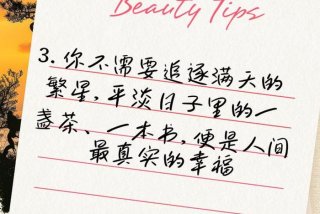 Beauty Tips
3.你不需要追逐满天的
繁星,平淡日子里的一
盏茶、一本书,便是人间
最真实的幸福